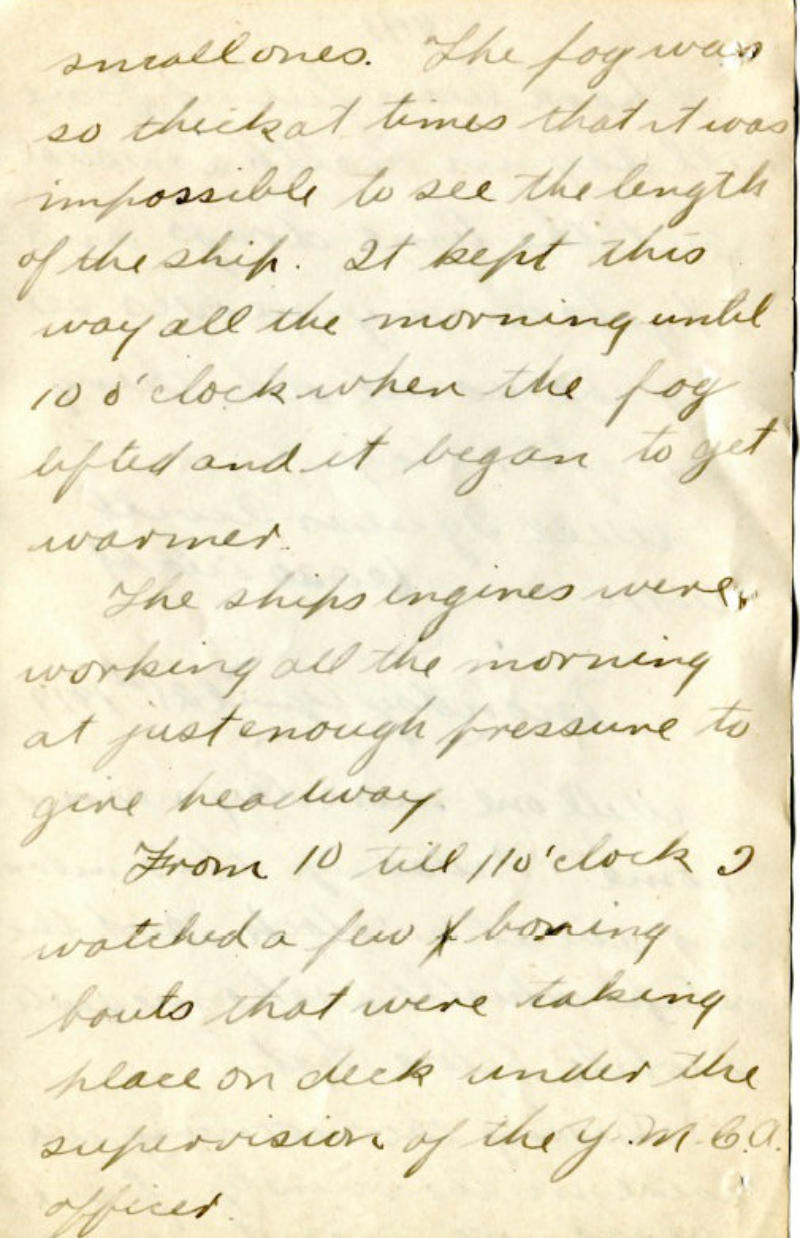 small ones. The fog was
so thick at times that it was
impossible to see the length
of the ship. It kept this
way all the morning until
10 o'clock when the fog
lifted and it began to get
warmer.
The ships engines were
working all the morning
at just enough pressure to
give headway
From 10 till 11 o'clock I
watched a few boxing
bouts that were taking
place on deck under the
supervision of the Y.M.C.A.
officer.